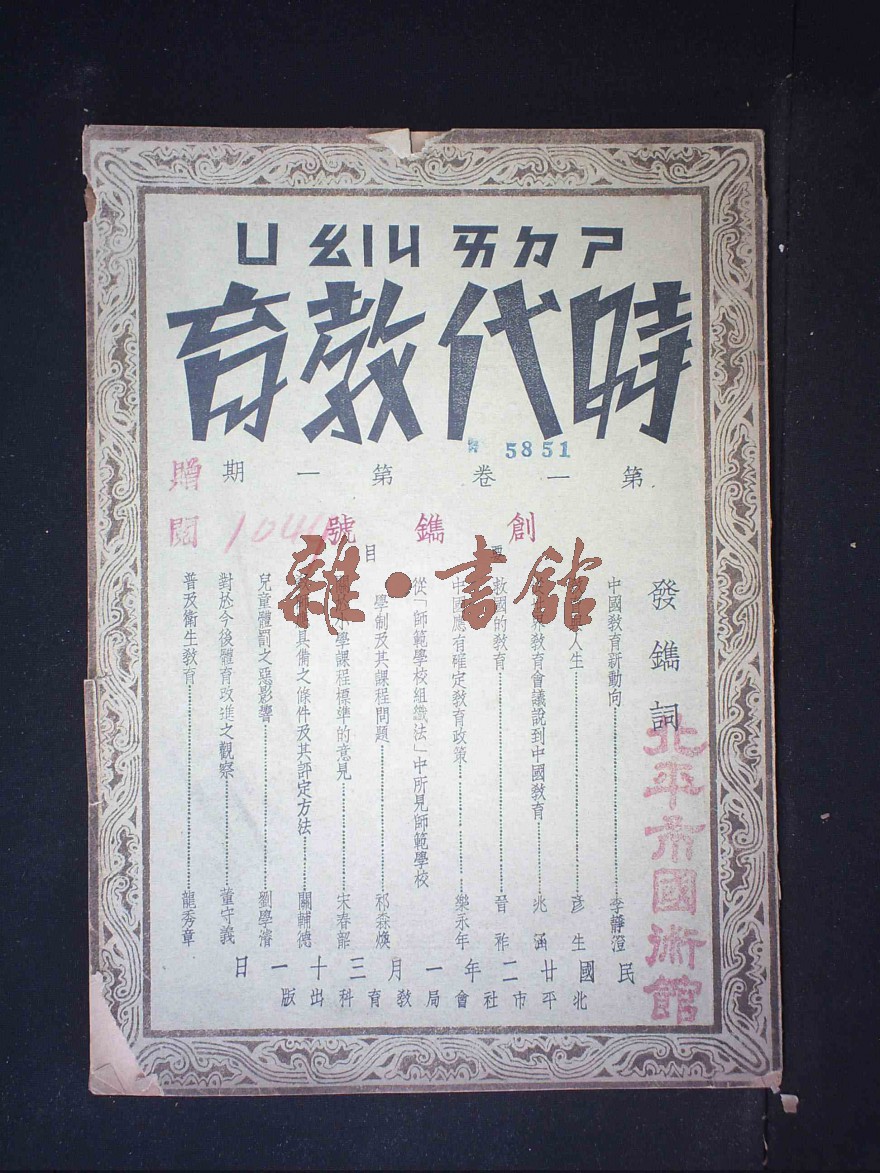 ㄕㄉㄞㄐㄧㄠㄩ
時代教育
5851
第一卷第一期
贈閱
創鐫號
要目
發鐫詞
中國教育新動向 李靜澄
人生 彥生
教育會議說到中國教育 兆涵
救國的教育 晉祚
中國應有確定教育政策 欒永年
從「師範學校組織法」中所見師範學校
學制及其課程問題 祁森煥
小學課程標準的意見 宋春韶
具備之條件及其評定方法 關輔德
兒童體罰之惡影響 劉學濬
對於今後體育改進之觀察 董守義
普及衛生教育 龍秀章
民國廿二年一月三十一日
北平市社會局教育科出版
北平市國術館
雜·書館